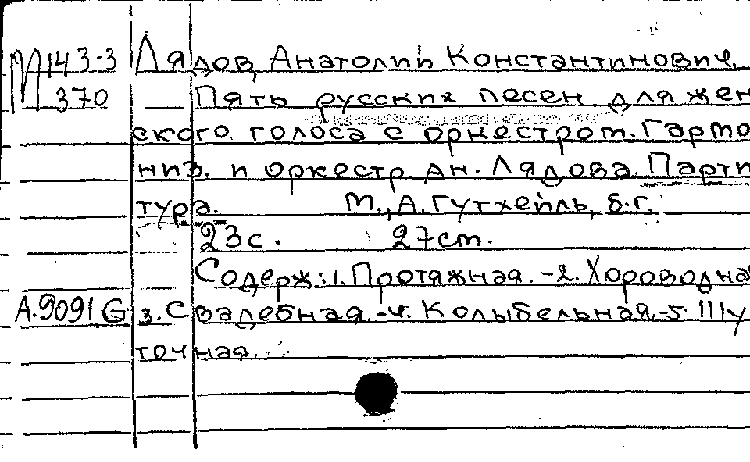 М 143-3 Лядов, Анатолий Константинович.
370 Пять русских песен для жен
ского голоса с оркестром. Гармо
низ. и оркестр. Ан. Лядова. Парти
тура. М., А. Гутхейль, б.г.
23с. 27см.
Содерж.: 1. Протяжная. -2. Хороводная
А.9091 G 3. Свадебная. -4. Колыбельная. -5. Шу
точная.